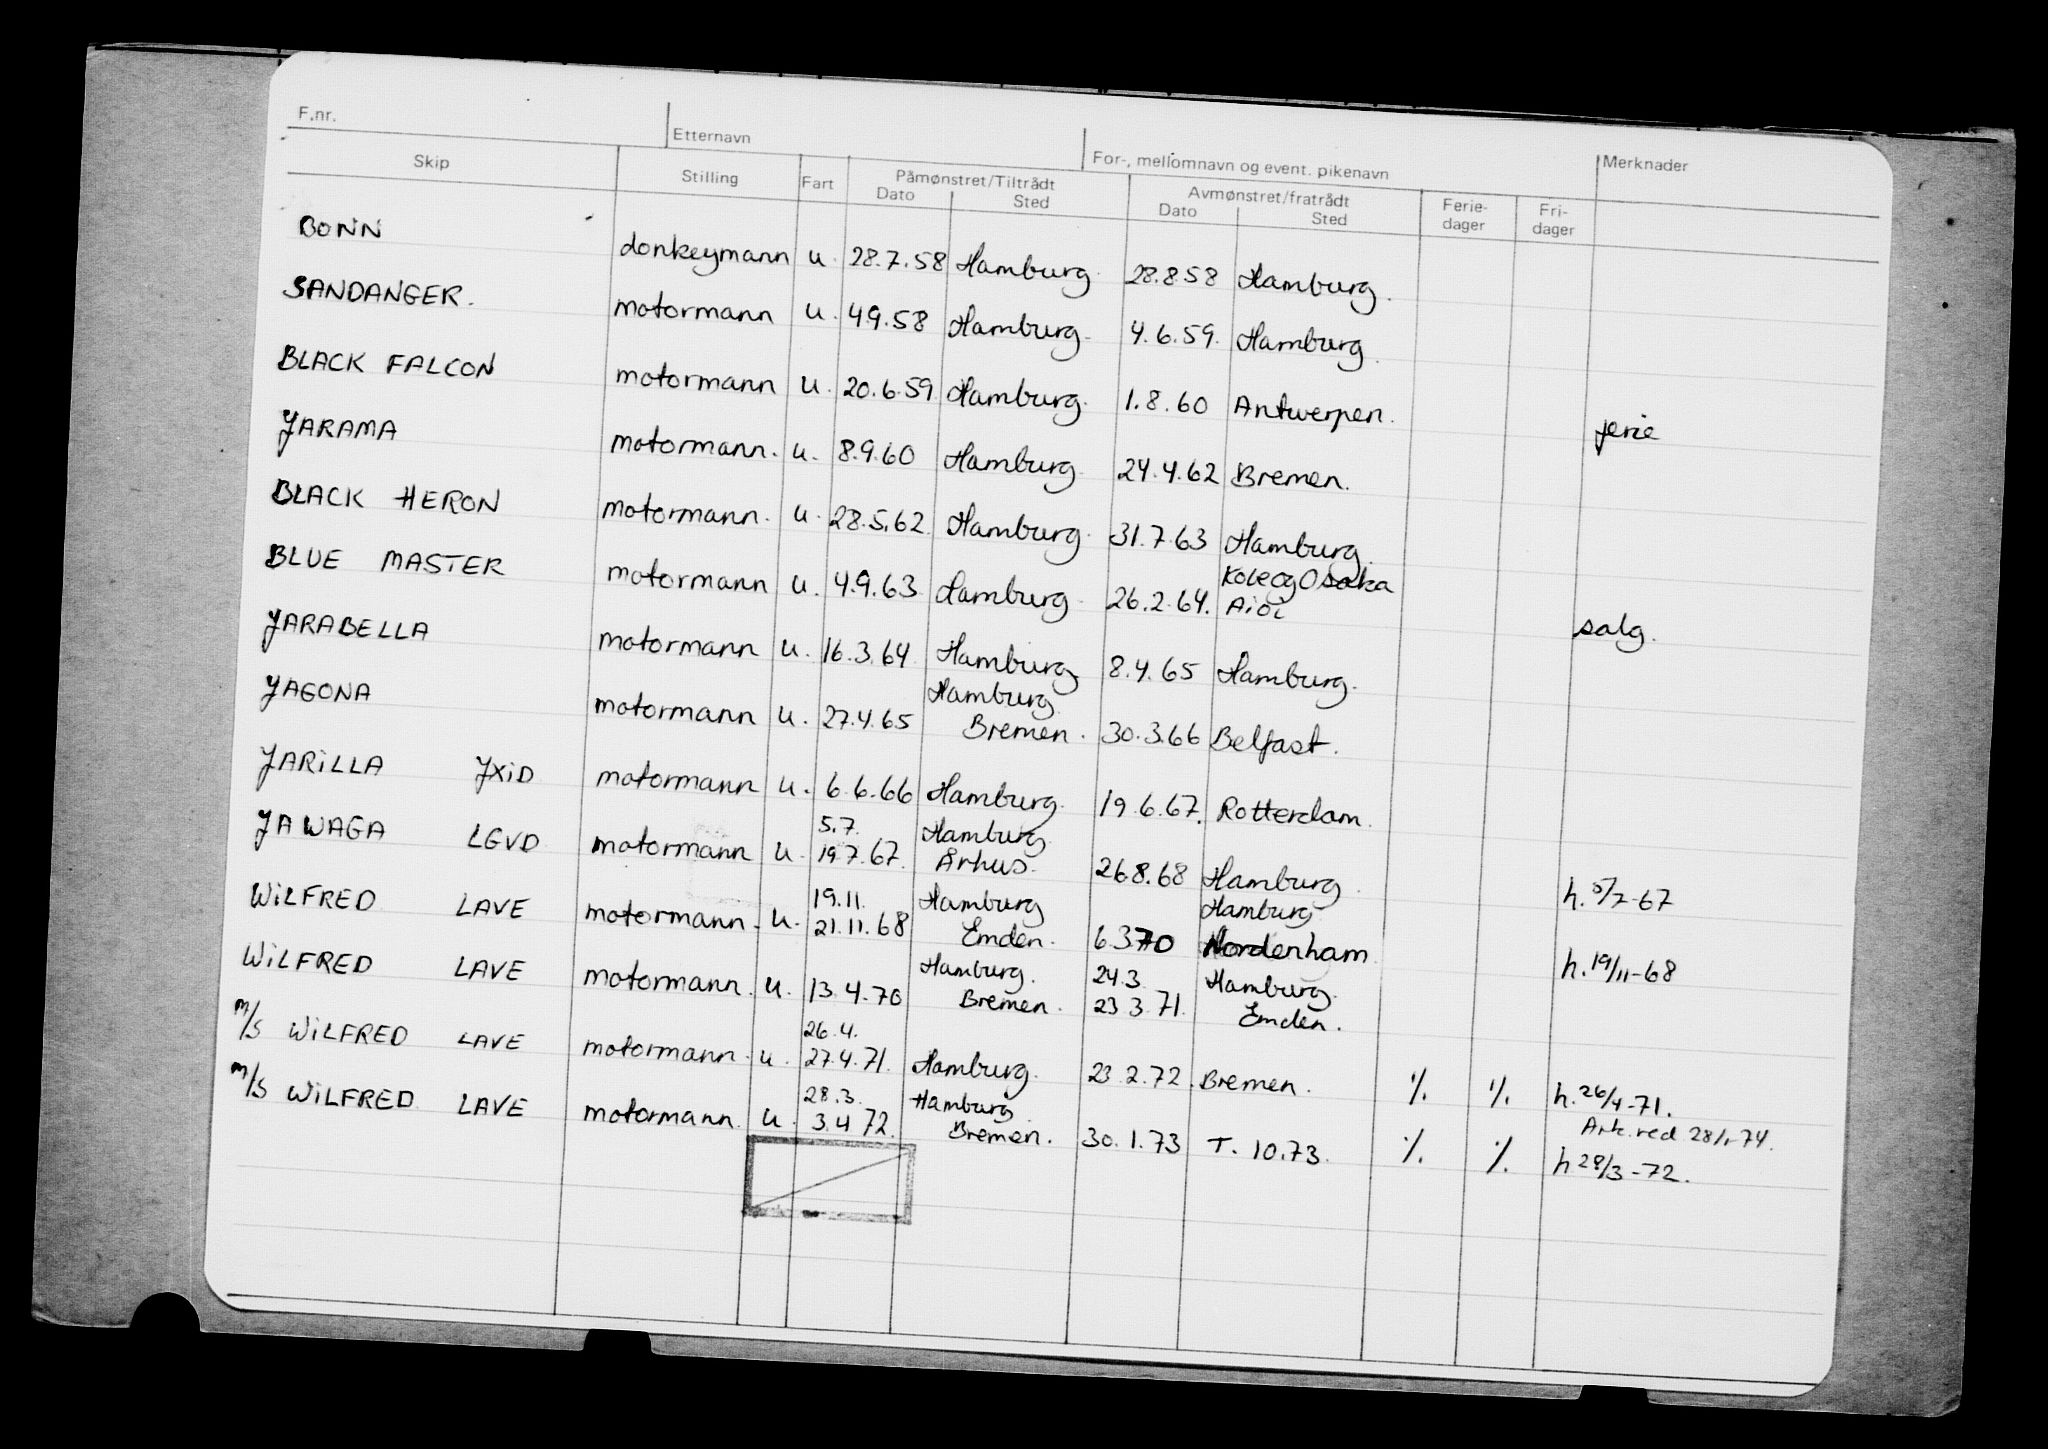 F.nr. Etternavn For-, mellomnavn og event. pikenavn Merknader
Skip Stilling Fart Påmønstret/Tiltrådt Avmønstret/fratrådt Ferie- Fri-
Dato Sted Dato Sted dager dager
BONN donkeymann u. 28.7.58 Hamburg. 28.8.58 Hamburg.
SANDANGER. motormann u. 4.9.58 Hamburg. 4.6.59. Hamburg.
BLACK FALCON motormann u. 20.6.59. Hamburg. 1.8.60 Antwerpen. ferie
JARAMA motormann. u. 8.9.60 Hamburg. 24.4.62 Bremen.
BLACK HERON motormann. u. 28.5.62. Hamburg. 31.7.63 Hamburg.
Kobe og Osaka
BLUE MASTER motormann u. 4.9.63 Hamburg. 26.2.64. Aioi salg.
JARABELLA motormann u. 16.3.64. Hamburg. 8.4.65 Hamburg.
Hamburg.
JAGONA motormann u. 27.4.65 Bremen. 30.3.66 Belfast.
JARILLA JXID motormann u. 6.6.66 Hamburg. 19.6.67. Rotterdam.
5.7. Hamburg.
JAWAGA LGVD motormann u. 19.7.67. Århus. 26.8.68 Hamburg. h. 5/7-67
19.11. Hamburg Hamburg
WILFRED LAVE motormann. u. 21.11.68 Emden. 6.3.70 Nordenham. h. 19/11-68
Hamburg. 24.3. Hamburg.
WILFRED LAVE motormann. u. 13.4.70 Bremen. 23.3.71. Emden.
26.4.
m/s WILFRED LAVE motormann. u. 27.4.71. Hamburg. 23.2.72. Bremen. ./. ./. h. 26/4-71.
28.3. Hamburg. Ark. red 28/1-74.
m/s WILFRED LAVE motormann. u. 3.4.72. Bremen. 30.1.73 T. 10.73. ./. ./. h 28/3-72.